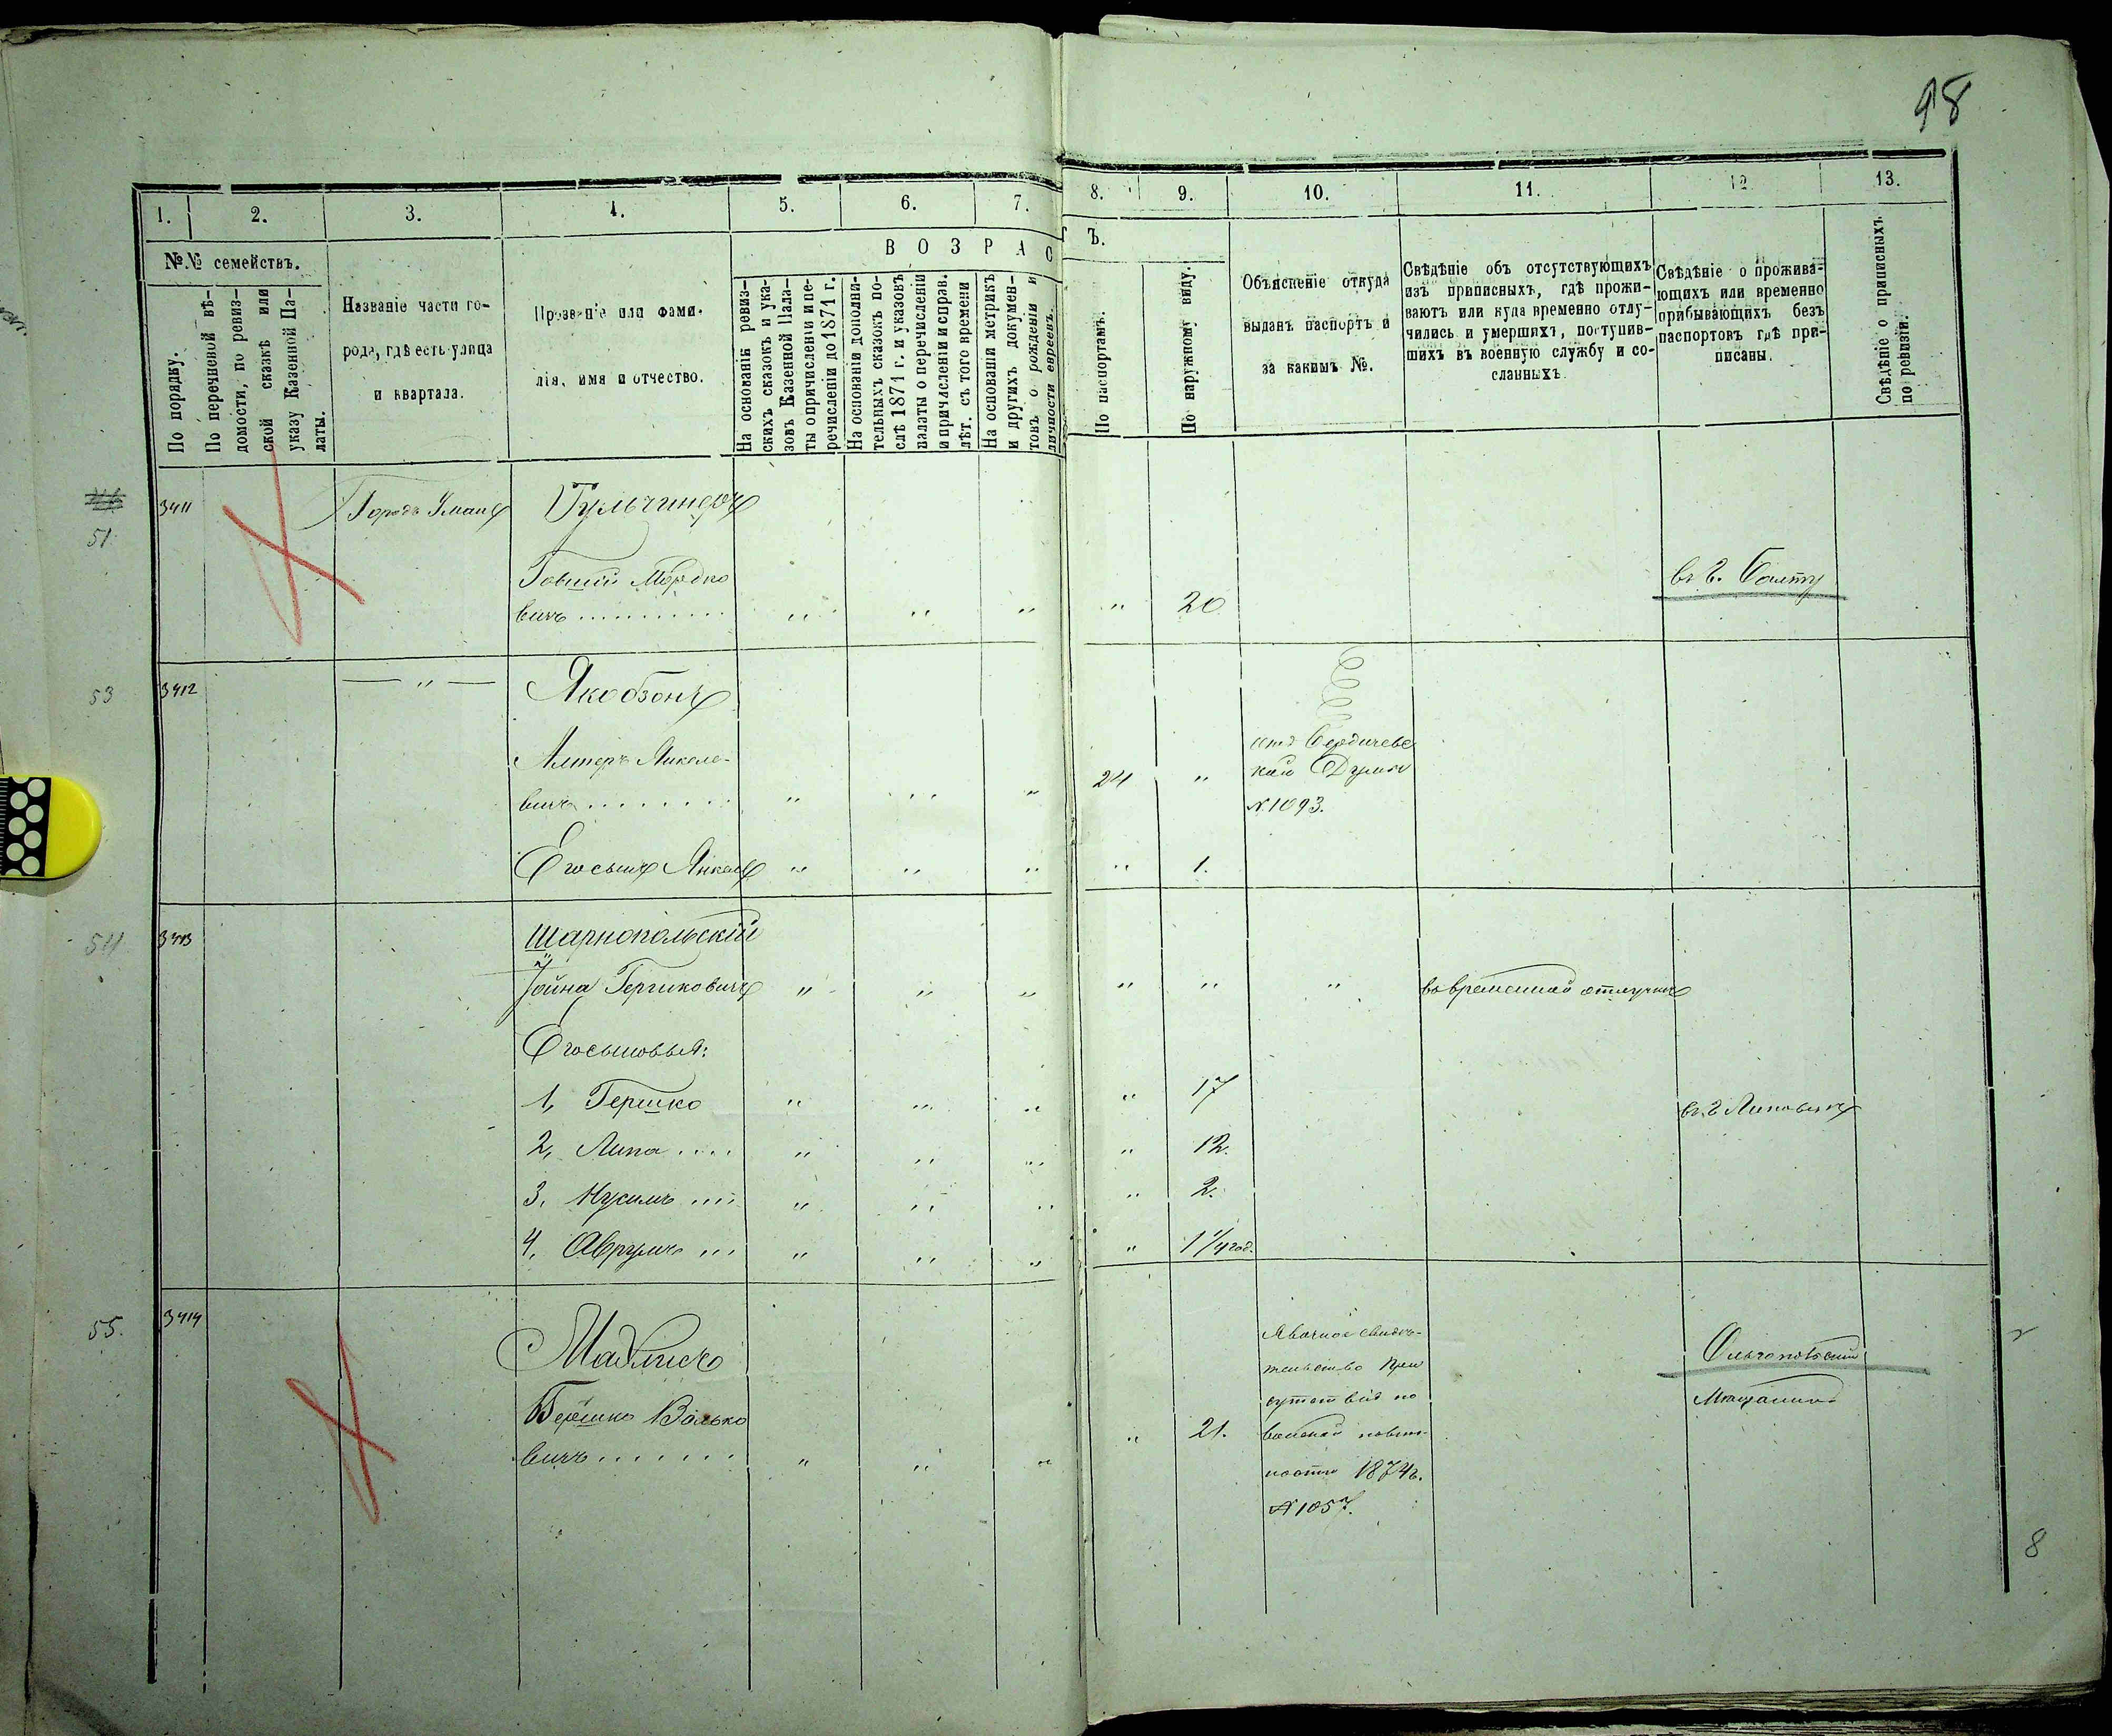 98
1. 2. 3. 4. 5. 6. 7. 8. 9. 10. 11. 12 13.
№№ семействъ.
По порядку.
По перечневой вѣ-
домости, по ревиз-
ской сказкѣ или
указу Казенной Па-
латы.
Названіе части го-
рода, гдѣ есть улица
и квартала.
Прозвніе или фами-
лія, имя и отчество.
ВОЗРАС
Ъ.
На основаніи ревиз-
скихъ сказокъ и ука-
зовъ Казенной Пала-
ты о причисленіи и пе-
речисленіи до 1871 г.
На основаніи дополни-
тельныхъ сказокъ по-
слѣ 1871 г. и указовъ
палаты о перечисленіи
и причисленіи и справ.
лѣт. съ того времени
На основаніи метрикъ
и другихъ докумен-
товъ о рожденіи и
личности евреевъ.
По паспортамъ.
По наружному виду.
Объясненіе откуда
выданъ паспортъ и
за какимъ №.
Свѣдѣніе объ отсутствующихъ
изъ приписныхъ, гдѣ прожи-
ваютъ или куда временно отлу-
чились и умершихъ, поступив-
шихъ въ военную службу и со-
сланныхъ.
Свѣдѣніе о прожива-
ющихъ или временно
прибывающихъ безъ
паспортовъ гдѣ при-
писаны.
Свѣдѣніе о приписныхъ
по ревизіи.
51.
3411 Городъ Умань
Товшій Мордко
вичъ 20
въ г. Балту
53
3412 — " — Якобзонъ
Алтеръ Янкеле-
вичъ 24 "
отъ Бердичевс
кой Думы
№.1093.
Его сынъ Янкель 1.
54
3413 Шарнопольскій
Іойна Гершковичъ
въ временной отлучкѣ
Его сыновья:
1, Гершко 17
въ г. Липовецъ
2, Липа 12.
3, Нусимъ 2.
4, Аврумъ 1 1/4 год.
55.
3414
Берешко Волько
вичъ 21.
Явочное свидѣ-
тельство При
сутствія по
воинской повин-
ности 1874 г.
№1057.
Ольгопольскій
Мѣщанинъ
8